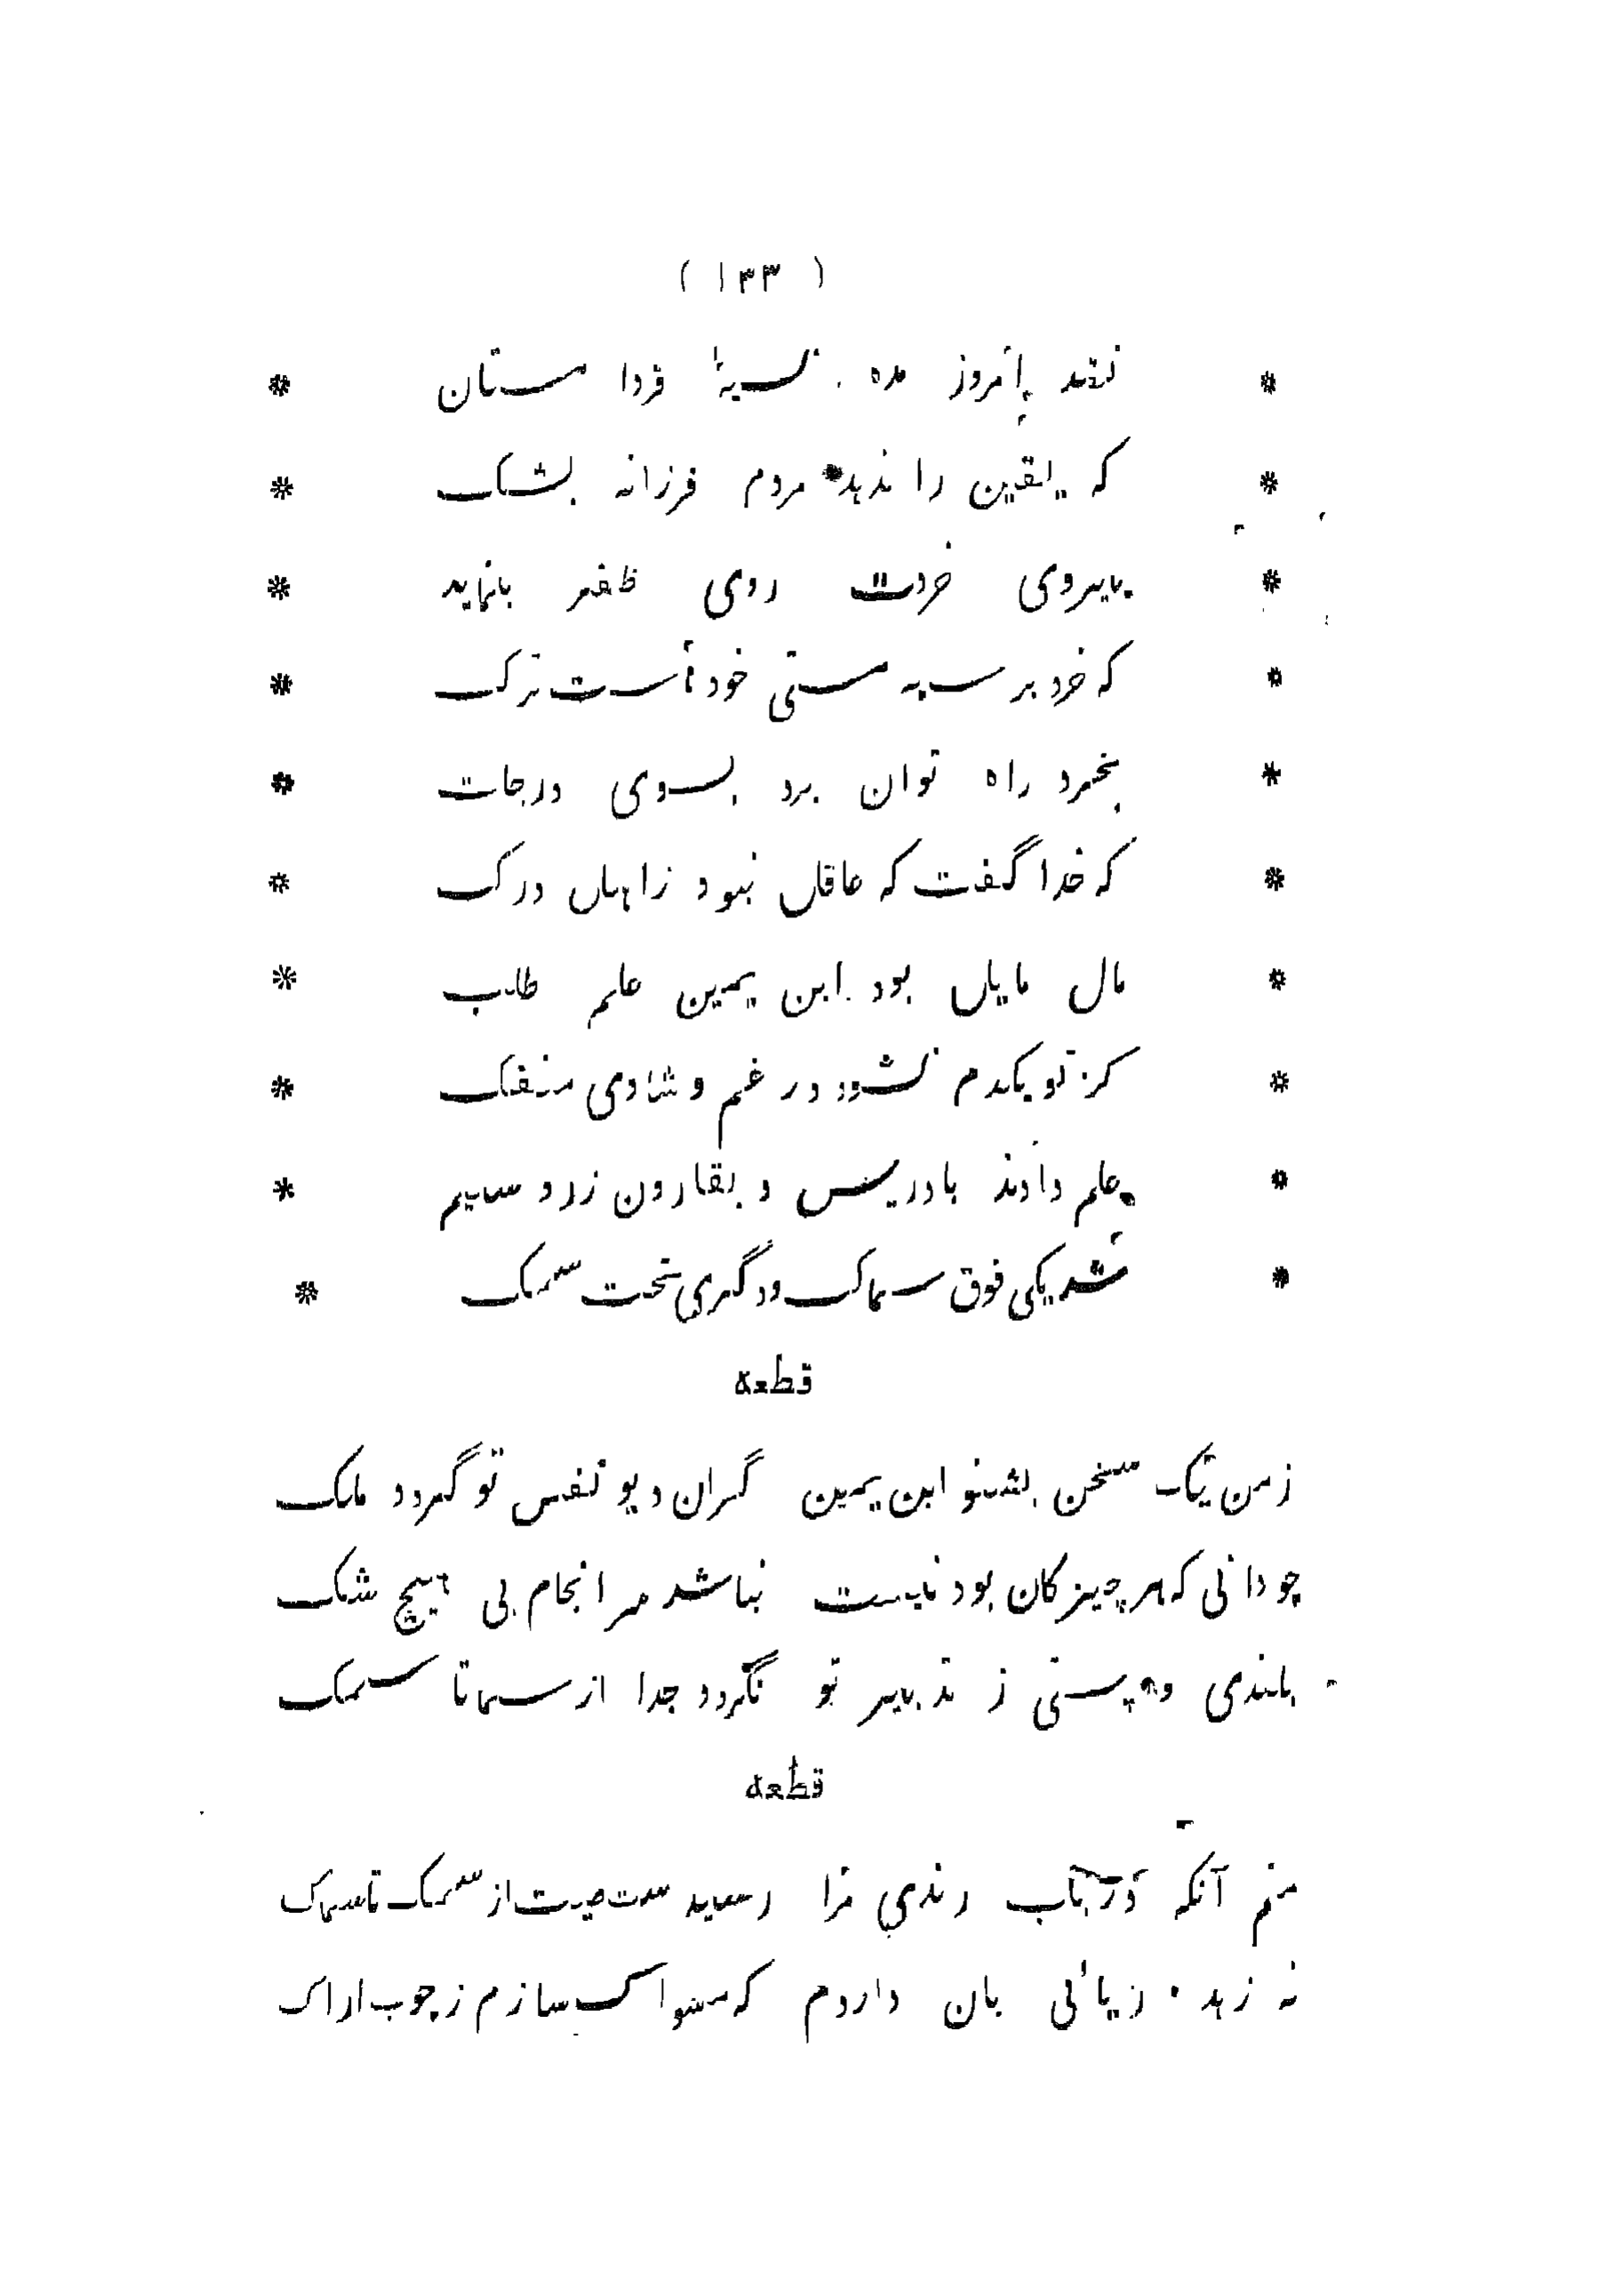 ( ۱۳۳ )
* نقد بامروز مده نسیهٔ فردا مستان *
* که یقین را ندهد مردم فرزانه بشک *
* پیروی خردت روی ظفر بنماید *
* که خرد بر سپه هستی خود است ترک *
* بخرد راه توان برد بسوی درجات *
* که خدا گفت که عاقل نبود زاهل درک *
* مال مایل بود ابن یمین علم طلب *
* کز تو یکدم نشود در غم و شادی منفک *
* علم دادند بادریس و بقارون زر و سیم *
* شد یکی فوق سماک ودگری تحت سمک *
قطعه
زمن یک سخن بشنو ابن یمین گران دیو نفس تو گردد ملک
چو دانی که هر چیز کان بود نیست نباشد سر انجام بی هیچ شک
بلندی و پستی ز تدبیر تو نگردد جدا از سما تا سمک
قطعه
منم آنکه در باب رندی مرا رسید ست صیت از سمک تا سماک
نه زهد ریائی بان داردم که مسواک سازم ز چوب اراک